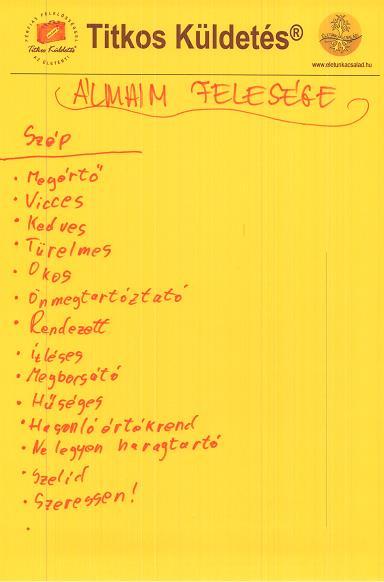 PÉNZÜGYI FELELŐSSÉGGEL
Titkos Küldetés
AZ ÉLETÉRT!
Titkos Küldetés®
www.eletunkacsalad.hu
ÁLMAIM FELESÉGE
Szép
• Megértő
• Vicces
• Kedves
• Türelmes
• Okos
• Önmegtartóztató
• Rendezett
• ízléses
• Megborsátó
• Hűséges
• Hasonló értékrend
• Ne legyen haragtartó
• Szelid
• Szeressen!
•